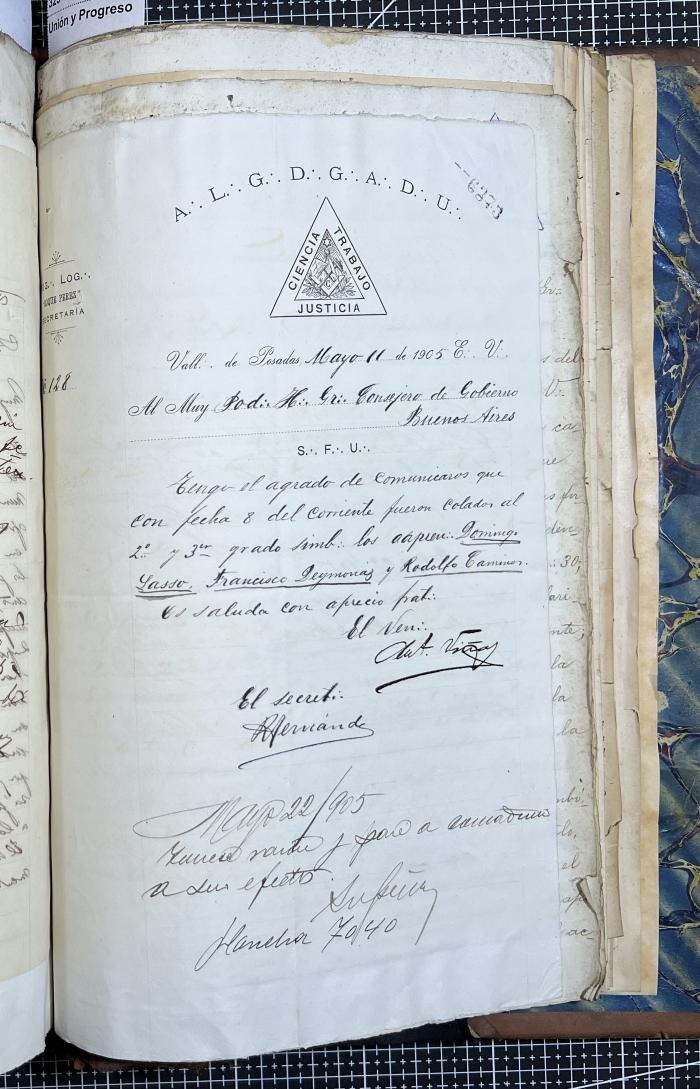 Unión y Progreso
A∴ L∴ G∴ D∴ G∴ A∴ D∴ U∴
6273
CIENCIA TRABAJO
JUSTICIA
Log∴
"ROQUE PEREZ"
SECRETARÍA
128
Vall∴ de Posadas, Mayo 11 de 1905 E∴ V∴
Al Muy Pod∴ H∴ Gr∴ Consejero de Gobierno
Buenos Aires
S∴ F∴ U∴
Tengo el agrado de comunicaros que
con fecha 8 del corriente fueron colados al
2º y 3er grado simb∴ los aapren∴ Domingo
Lasso, Francisco Deymonáz y Rodolfo Caminos.
Os saluda con aprecio frat∴
El Ven∴
Ant. Viñas
El secret∴
R Fernández
Mayo 22/905
y pase a
a sus efectos
Plancha 7040